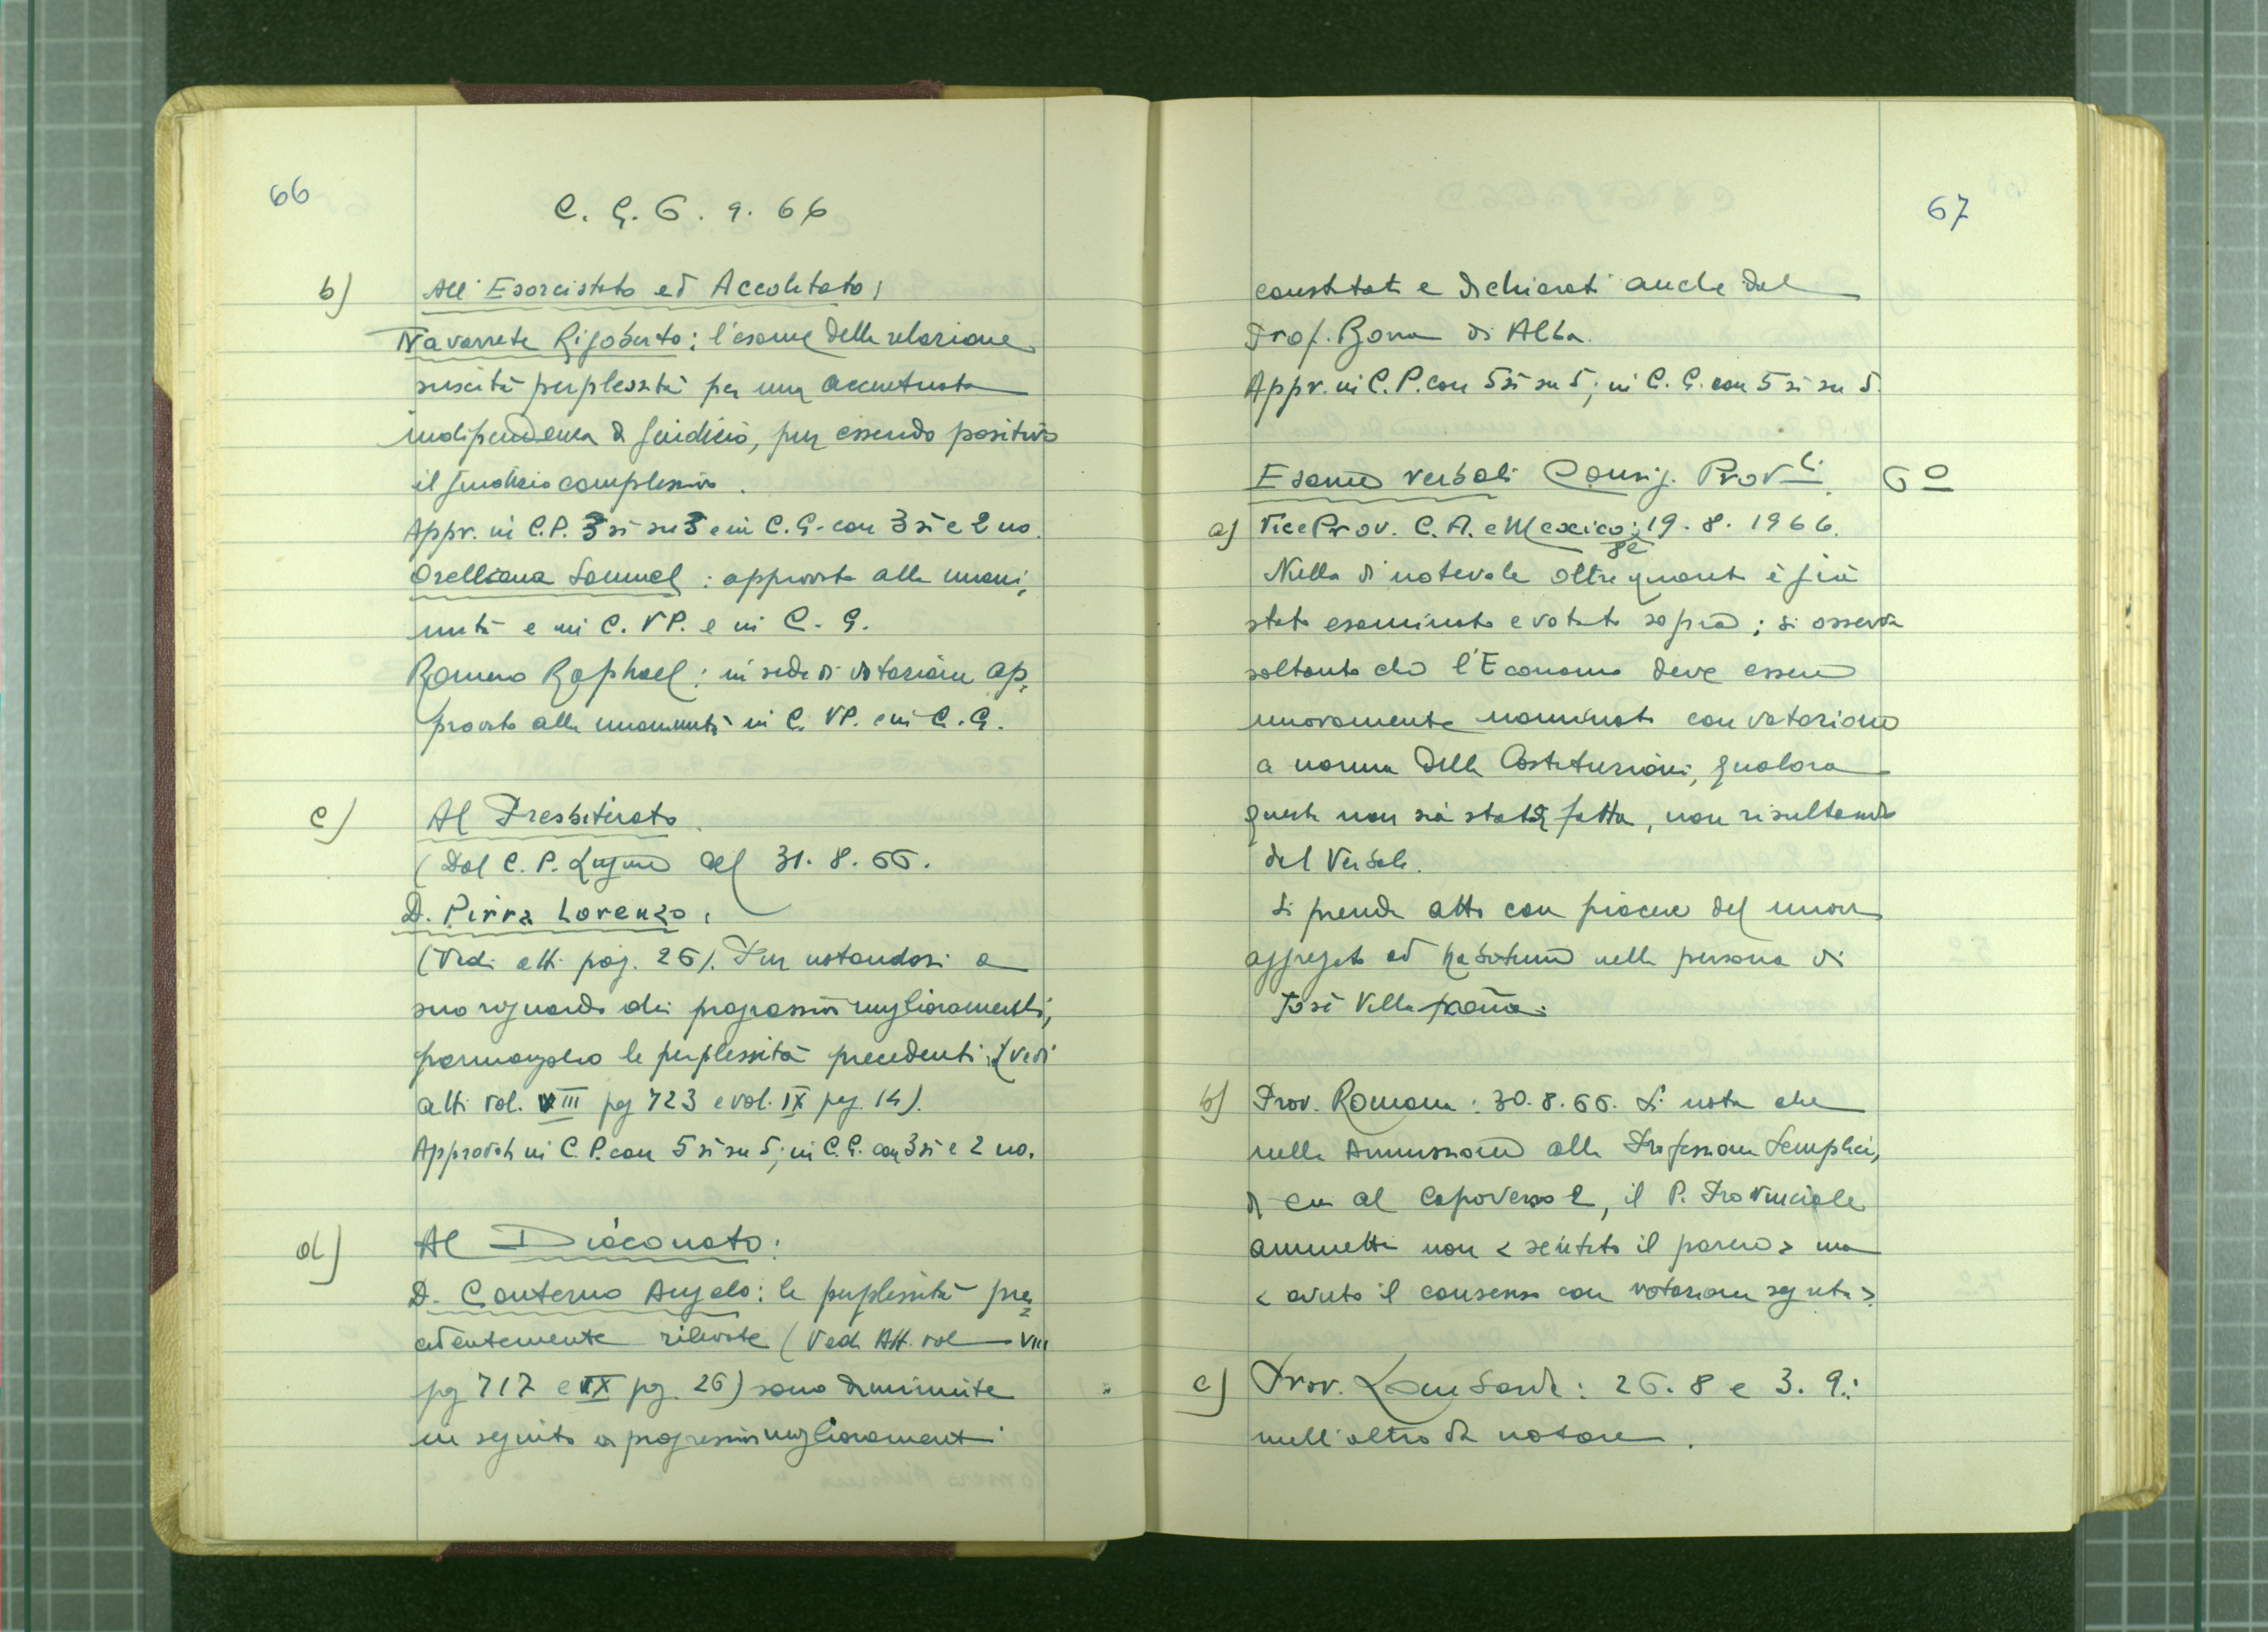 66
C. G. 6. 9. 66
b) All'Esorcistato ed Accolitato:
Navarrete Rigoberto: l'esame della relazione
suscita perplessità per una accentuata
indipendenza di giudizio, pur essendo positivo
il giudizio complessivo.
Appr. in C.P. 3 sì su 3 e in C.G. con 3 sì e 2 no.
Orelliana Samuel: approvato alla unani-
mità e in C. VP. e in C. G.
Romero Raphael: in sede di votazione ap-
provato alla unanimità in C. VP. e in C. G.
c) Al Presbiterato.
(Dal C. P. Ligure del 31. 8. 66.
D. Pirra Lorenzo:
(Vedi atti pag. 26). Pur notandosi a
suo riguardo dei progressivi miglioramenti,
permangono le perplessità precedenti (vedi
atti vol. VIII pg 723 e vol. IX pg. 14).
Approvato in C. P. con 5 sì su 5; in C. G. con 3 sì e 2 no.
d) Al Diaconato:
D. Conterno Angelo: le perplessità pre-
cedentemente rilevate (Vedi Att. vol VIII
pg 717 e IX pg. 26) sono diminuite
in seguito a progressivi miglioramenti
67
constatati e dichiarati anche dal
Prof. Bona di Alba.
Appr. in C. P. con 5 sì su 5; in C. G. con 5 sì su 5.
Esame verbali Consig. Prov.li. 6º
a) Vice Prov. C. A. e Mexico: 19. 8. 1966.
Nulla di notevole oltre quanto è già
stato esaminato e votato sopra; si osserva
soltanto che l'Economo deve essere
nuovamente nominato con votazione
a norma delle Costituzioni, qualora
questa non sia stata fatta, non risultando
dal Verbale.
Si prende atto con piacere del nuovo
aggregato ad habitum nella persona di
José Villafaña.
b) Prov. Romana: 30. 8. 66. Si nota che
nella Ammissione alla Professione Semplice,
di cui al capoverso 2, il P. Provinciale
ammette non < sentito il parere > ma
< avuto il consenso con votazione segreta >.
c) Prov. Lombarda: 26. 8 e 3. 9.:
null'altro da notare.